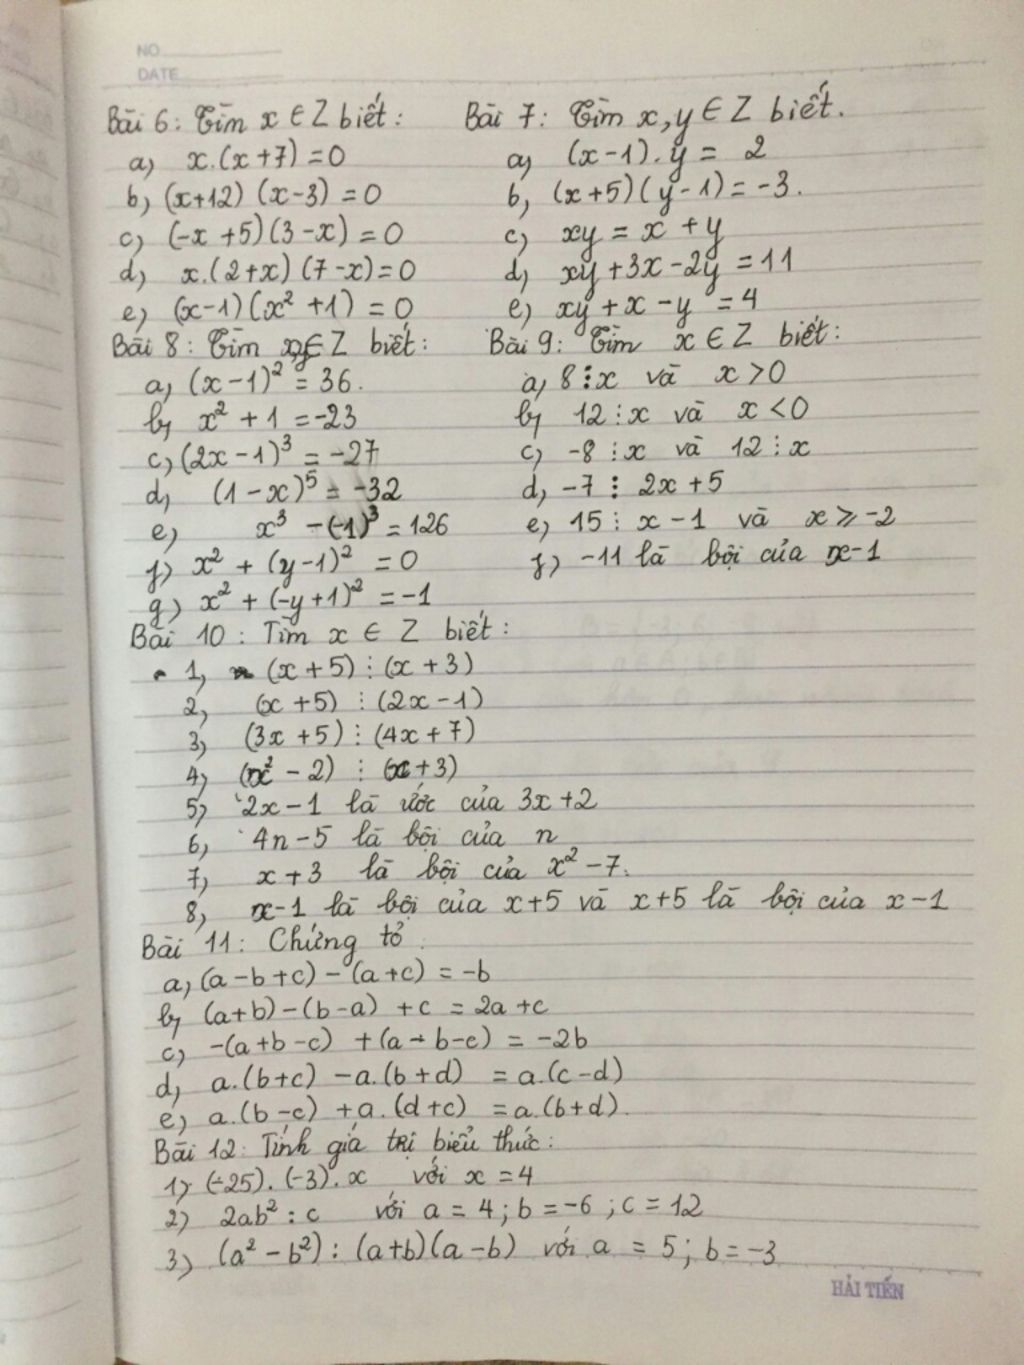 NO
DATE
Bài 6: Tìm x ∈ Z biết:
a) x.(x+7) = 0
b) (x+12) (x-3) = 0
c) (-x +5)(3-x) = 0
d) x.(2+x) (7-x) = 0
e) (x-1)(x² +1) = 0
Bài 7: Tìm x,y ∈ Z biết.
a) (x-1).y = 2
b) (x+5)(y-1) = -3.
c) xy = x + y
d) xy +3x -2y = 11
e) xy + x - y = 4
Bài 8: Tìm x,y ∈ Z biết:
a) (x-1)² = 36.
b) x² + 1 = -23
c) (2x-1)³ = -27
d) (1-x)⁵ = -32
e) x³ - (-1)³ = 126
f) x² + (y-1)² = 0
g) x² + (-y+1)² = -1
Bài 9: Tìm x ∈ Z biết:
a) 8 ⋮ x và x > 0
b) 12 ⋮ x và x < 0
c) -8 ⋮ x và 12 ⋮ x
d) -7 ⋮ 2x + 5
e) 15 ⋮ x - 1 và x ≥ -2
f) -11 là bội của x-1
Bài 10: Tìm x ∈ Z biết:
1) (x + 5) ⋮ (x + 3)
2) (x + 5) ⋮ (2x - 1)
3) (3x +5) ⋮ (4x + 7)
4) (x² - 2) ⋮ (x + 3)
5) 2x - 1 là ước của 3x + 2
6) 4n - 5 là bội của n
7) x + 3 là bội của x² - 7.
8) x-1 là bội của x + 5 và x + 5 là bội của x - 1
Bài 11: Chứng tỏ:
a) (a - b + c) - (a + c) = -b
b) (a+b) - (b-a) + c = 2a + c
c) -(a + b - c) + (a - b - c) = -2b
d) a.(b+c) - a.(b+d) = a.(c-d)
e) a.(b-c) + a.(d+c) = a.(b+d).
Bài 12: Tính giá trị biểu thức:
1) (-25).(-3).x với x = 4
2) 2ab² : c với a = 4; b = -6; c = 12
3) (a² - b²) : (a+b)(a-b) với a = 5; b = -3
HẢI TIẾN